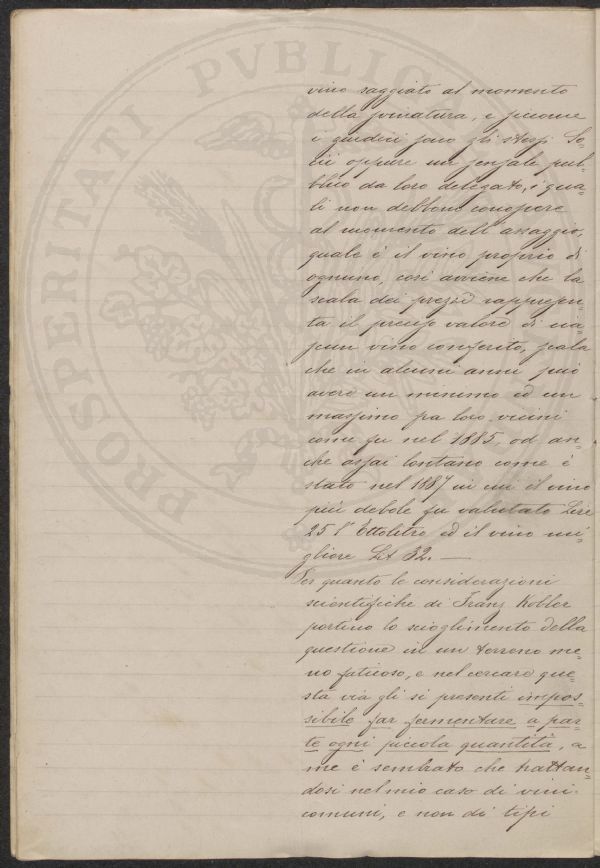 PROSPERITATI PVBLICA
vino saggiato al momento
della svinatura, e siccome
i giudici sono gli stessi So=
cii oppure un sensale pub=
blico da loro delegato, i qua=
li non debbono conoscere
al momento dell'assaggio,
quale è il vino proprio di
ognuno, così avviene che la
scala dei prezzi rappresen=
ta il preciso valore di cia=
scun vino conferito, scala
che in alcuni anni può
avere un minimo ed un
massimo fra loro vicini
come fu nel 1885 od an=
che assai lontano come è
stato nel 1887 in cui il vino
più debole fu valutato Lire
25 l'Ettolitro ed il vino mi=
gliore Lit 32. —
Per quanto le considerazioni
scientifiche di Franz Kobler
portino lo scioglimento della
questione in un terreno me=
no faticoso, e nel cercare que=
sta via gli si presenti impos=
sibile far fermentare a par=
te ogni piccola quantità, a
me è sembrato che trattan=
dosi nel mio caso di vini
comuni, e non di tipi